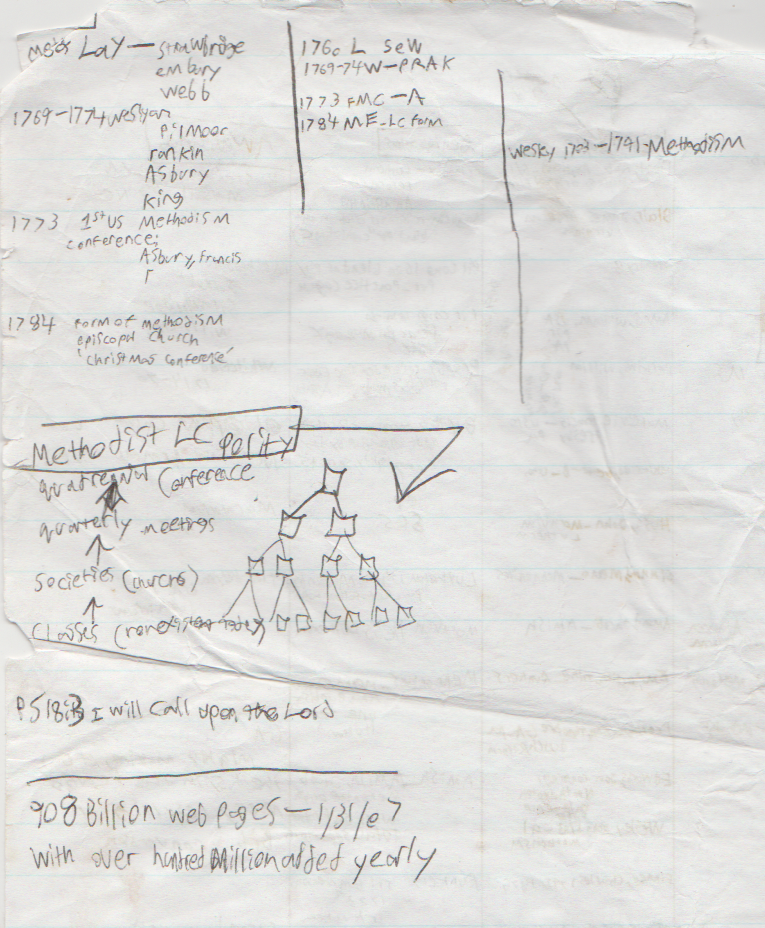 Lay — Strawbridge
embury
webb
1769-1774 Weslyan
Pilmoor
rankin
Asbury
King
1773 1st US Methodism
conference;
Asbury, Francis
r
1784 Form of methodism
episcopal church
'christmas conference'
1760 L SeW
1769-74 W-PRAK
1773 FMC-A
1784 ME-LC form
Wesley 1703-1791-Methodism
Methodist LC Polity
Conference
quarterly meetings
Societies (churchs)
Classes (nonexistent today)
I will call upon the Lord
908 Billion web pages - 1/31/07
With over hundred Million added yearly